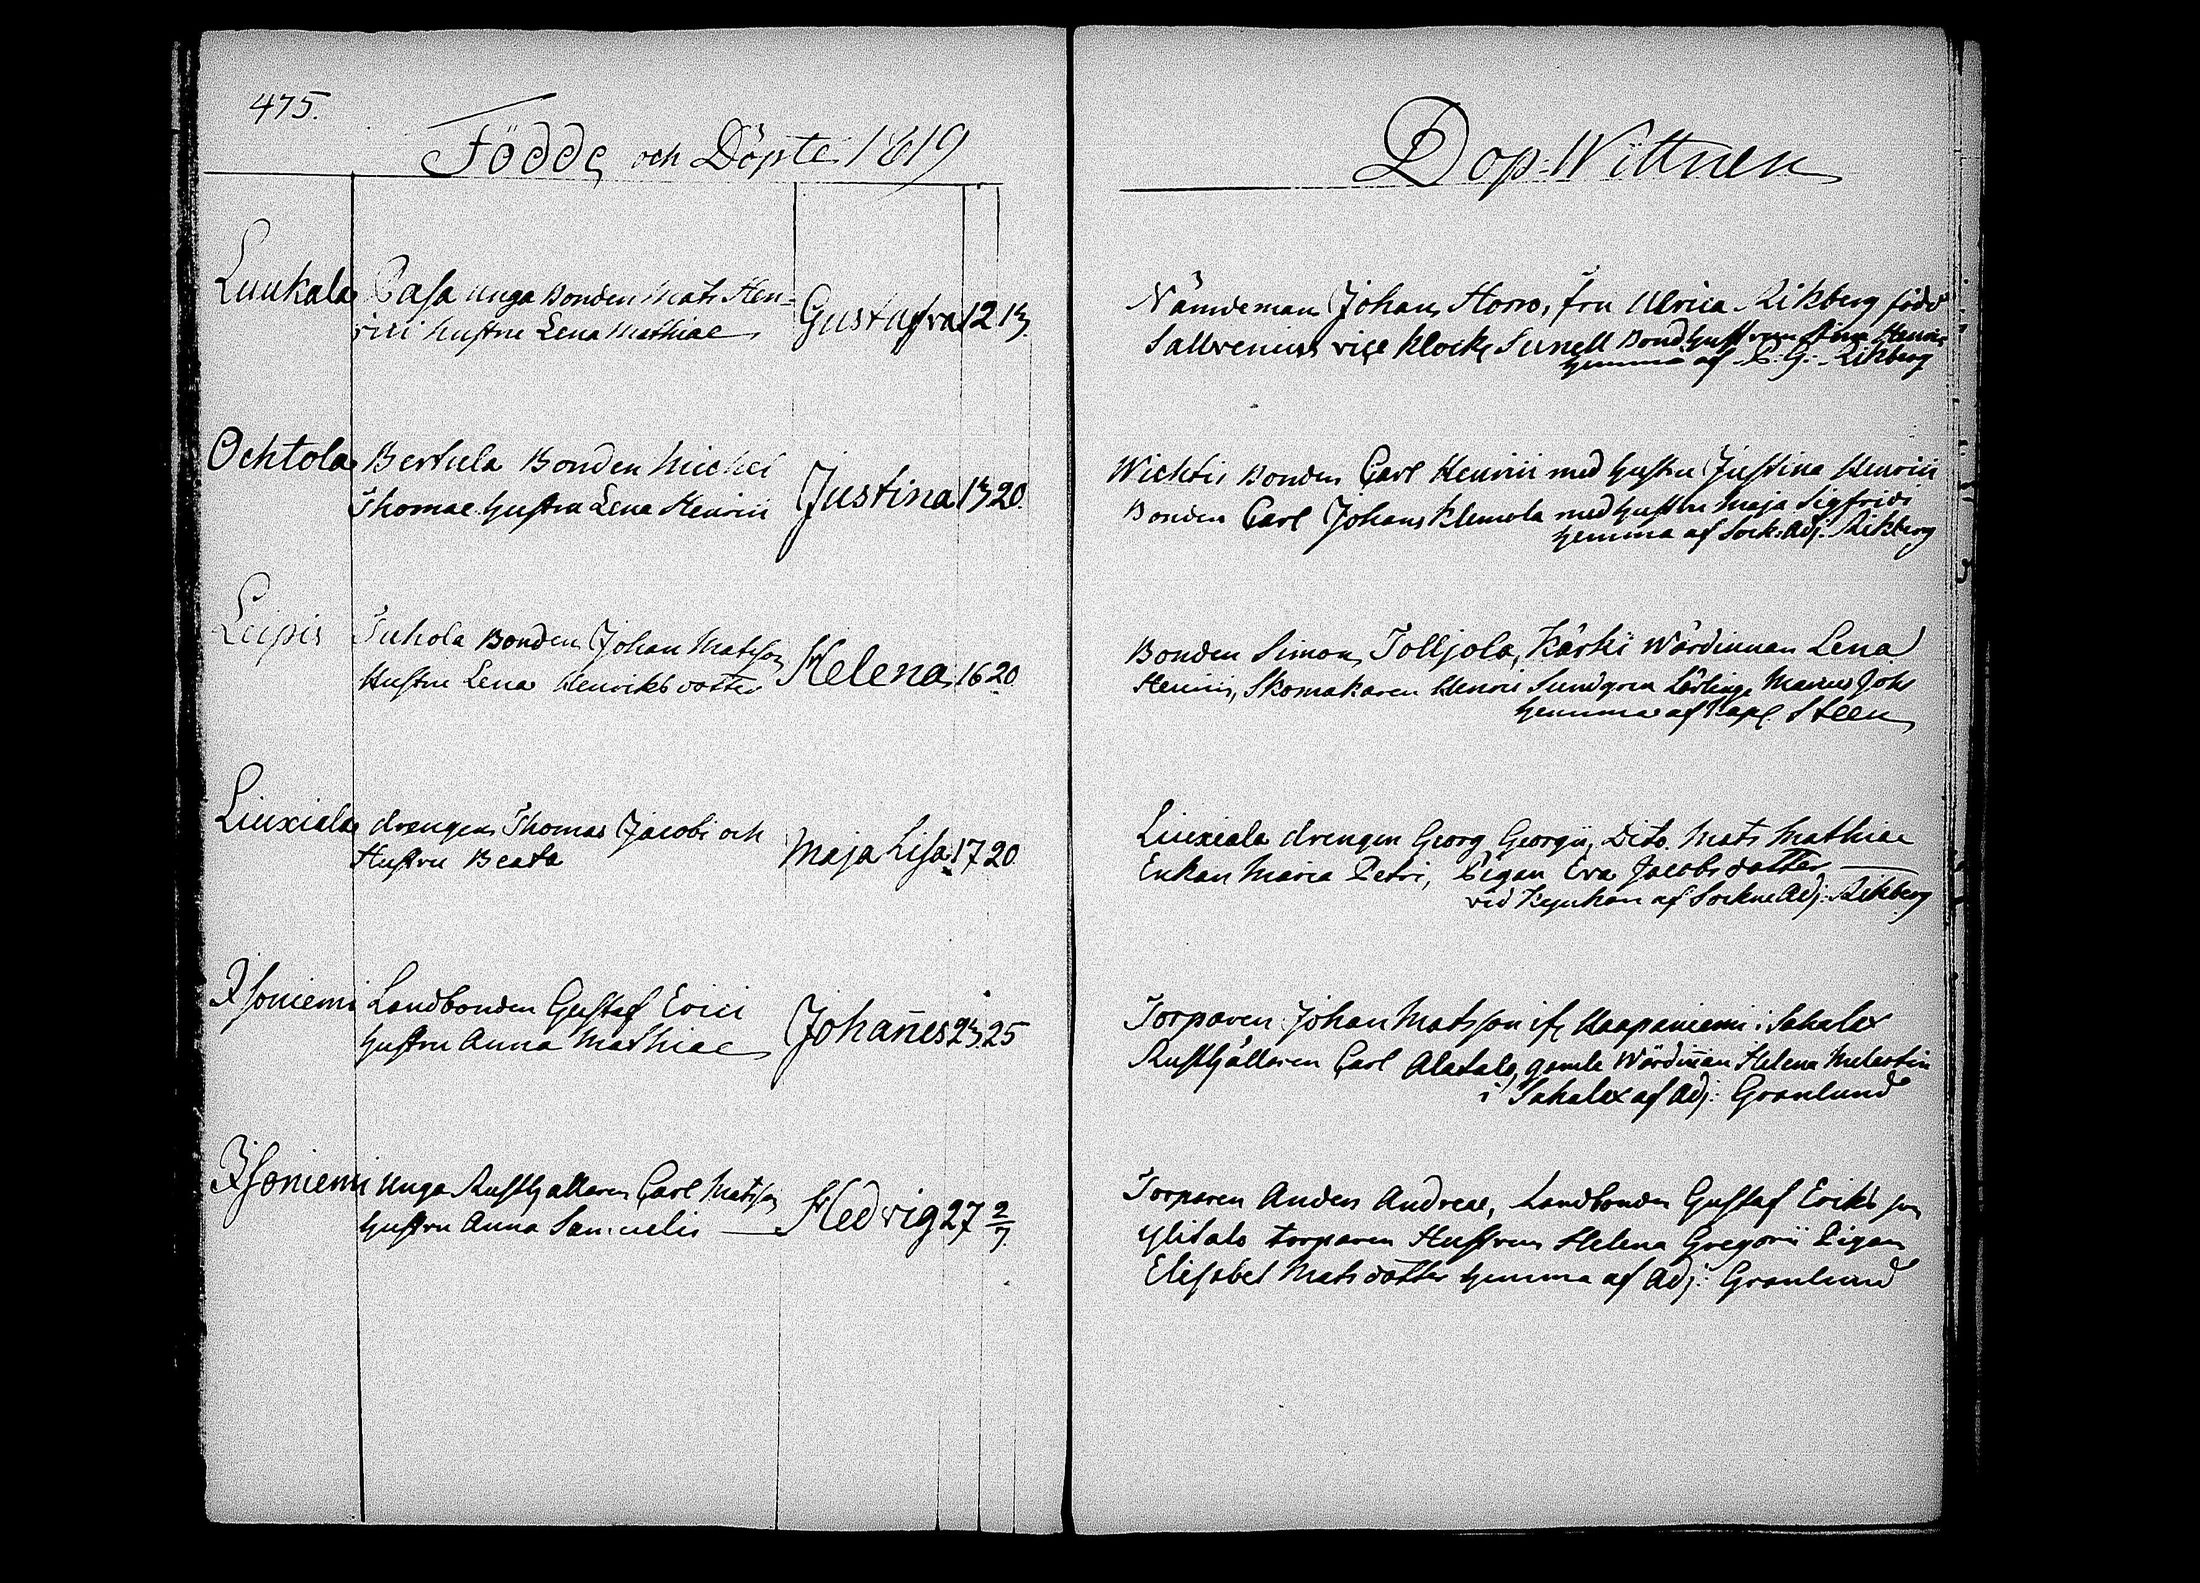 475.
Födde och Döpte 1819
Luukala Casa unga Bonden Mats Hen=
rici hustru Lena Mathiae Gustafva 12 13.
Ochtola Bertula Bonden Michel
Thomae hustru Lena Henrici Justina 13 20.
Leipis Juhola Bonden Johan Matsson
Hustru Lena Henriksdotter Helena 16 20
Liuxiala drengen Thomas Jacobi och
Hustru Beata Maja Lisa 17 20
Isoniemi Landbonden Gustaf Erici
hustru Anna Mathiae Johañes 23 25
Isoniemi unga Rusthållaren Carl Matsson
hustru Anna Samuelis Hedvig 27 2/7
Dop-Wittnen
Nämdeman Johan Horro, fru Ulrica Rikberg född
vice klock Sunell Bond hustrun Stina Henric
hemma af C. G. Rikberg
Wichtis Bonden Carl Henrici med hustru Justina Henrici
Bonden Carl Johans Klemola med hustru Maja Sigfrids
hemma af Sock: Adj: Rikberg
Bonden Simon Tolljola, Kärki Wärdinnan Lena
Henrici, Skomakaren Henric Sundgren Lärlinge Marcus Johs
hemma af Kapl Steen
Liuxiala drengen Georg Georgii, Dito Mats Mathiae
Enkan Maria Petri, Pigan Eva Jacobsdotter
vid Kyrkan af Sockne Adj: Rikberg
Torparen Johan Matsson ifr Haapaniemi i Sahalax
Rusthållaren Carl Alatalo, gamle Wärdiñan Helena
i Sahalax af Adj: Granlund
Torparen Anders Andreae, Landbonden Gustaf Eriksson
Ylitalo torparen Hustrun Helena Gregorii Pigan
Elisabet Matsdotter hemma af Adj: Granlund